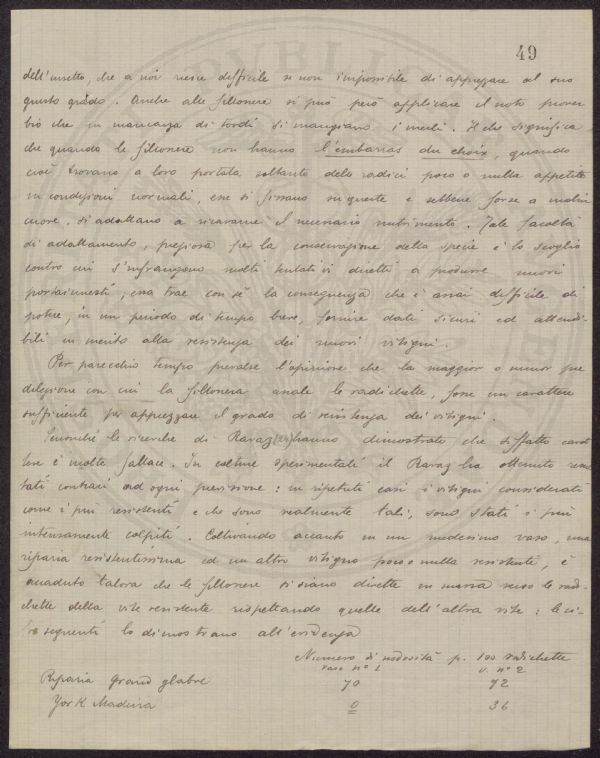 49
dell'insetto, che a noi riesce difficile se non impossibile di apprezzare al suo
giusto grado. Anche alle fillossere si può però applicare il noto prover
bio che in mancanza di tordi si mangiano i merli. Il che significa,
che quando le fillossere non hanno l'embarras du choix, quando
cioè trovano a loro portata soltanto delle radici poco o nulla appetite
in condizioni normali, esse si fissano su queste e sebbene forse a malin
cuore, si adattano a ricavarne il necessario nutrimento. Tale facoltà
di adattamento, preziosa per la conservazione della specie è lo scoglio
contro cui s'infrangono molti tentativi diretti a produrre nuovi
portainnesti, essa trae con sè la conseguenza che è assai difficile di
poter, in un periodo di tempo breve, fornire dati sicuri ed attendi
bili in merito alla resistenza dei nuovi vitigni.
Per parecchio tempo prevalse l'opinione che la maggior o minor pre
dilezione con cui la fillossera assale le radichette, fosse un carattere
sufficiente per apprezzare il grado di resistenza dei vitigni.
Senonché le ricerche di Ravaz hanno dimostrato che siffatto carat
tere è molto fallace. In colture sperimentali il Ravaz ha ottenuto risul
tati contrari ad ogni previsione: in ripetuti casi i vitigni considerati
come i più resistenti e che sono realmente tali, sono stati i più
intensamente colpiti. Coltivando accanto in un medesimo vaso, una
riparia resistentissima ed un altro vitigno poco o nulla resistente, è
accaduto talora che le fillossere si siano dirette in massa verso le radi-
chette della vite resistente rispettando quelle dell'altra vite: le ci-
fre seguenti lo dimostrano all'evidenza
Numero di nodosità p. 100 radichette
vaso nº 1 v. nº 2
Riparia Grand glabre 70 72
York Madeira 0 36